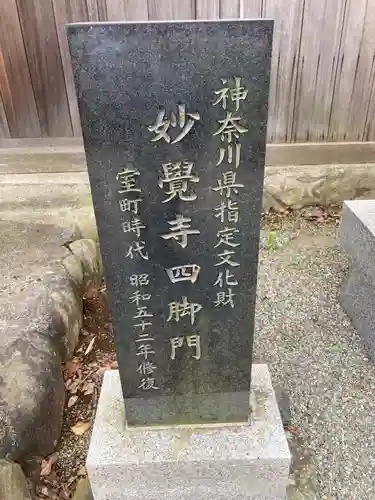 神奈川県指定文化財
妙覺寺四脚門
室町時代
昭和五十二年修復